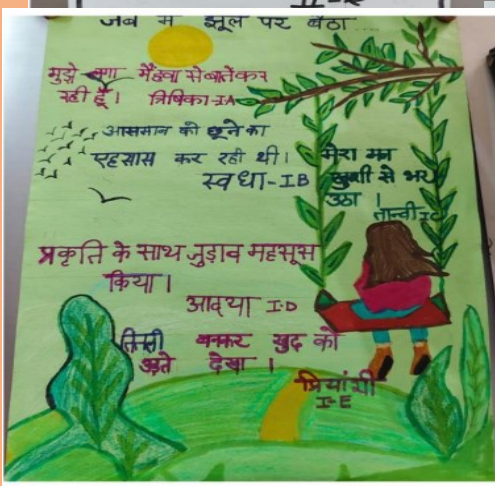 जब मैं झूले पर बैठा
मुझे लगा मैं हवा से बातें कर
रही हूँ। त्रिषिका-IA
आसमान को छूने का
एहसास कर रही थी।
स्वधा-IB
मेरा मन
खुशी से भर
उठा।
तान्वी IC
प्रकृति के साथ जुड़ाव महसूस
किया।
आद्या I-D
बनकर खुद को
उड़ते देखा।
प्रियांशी
I-E